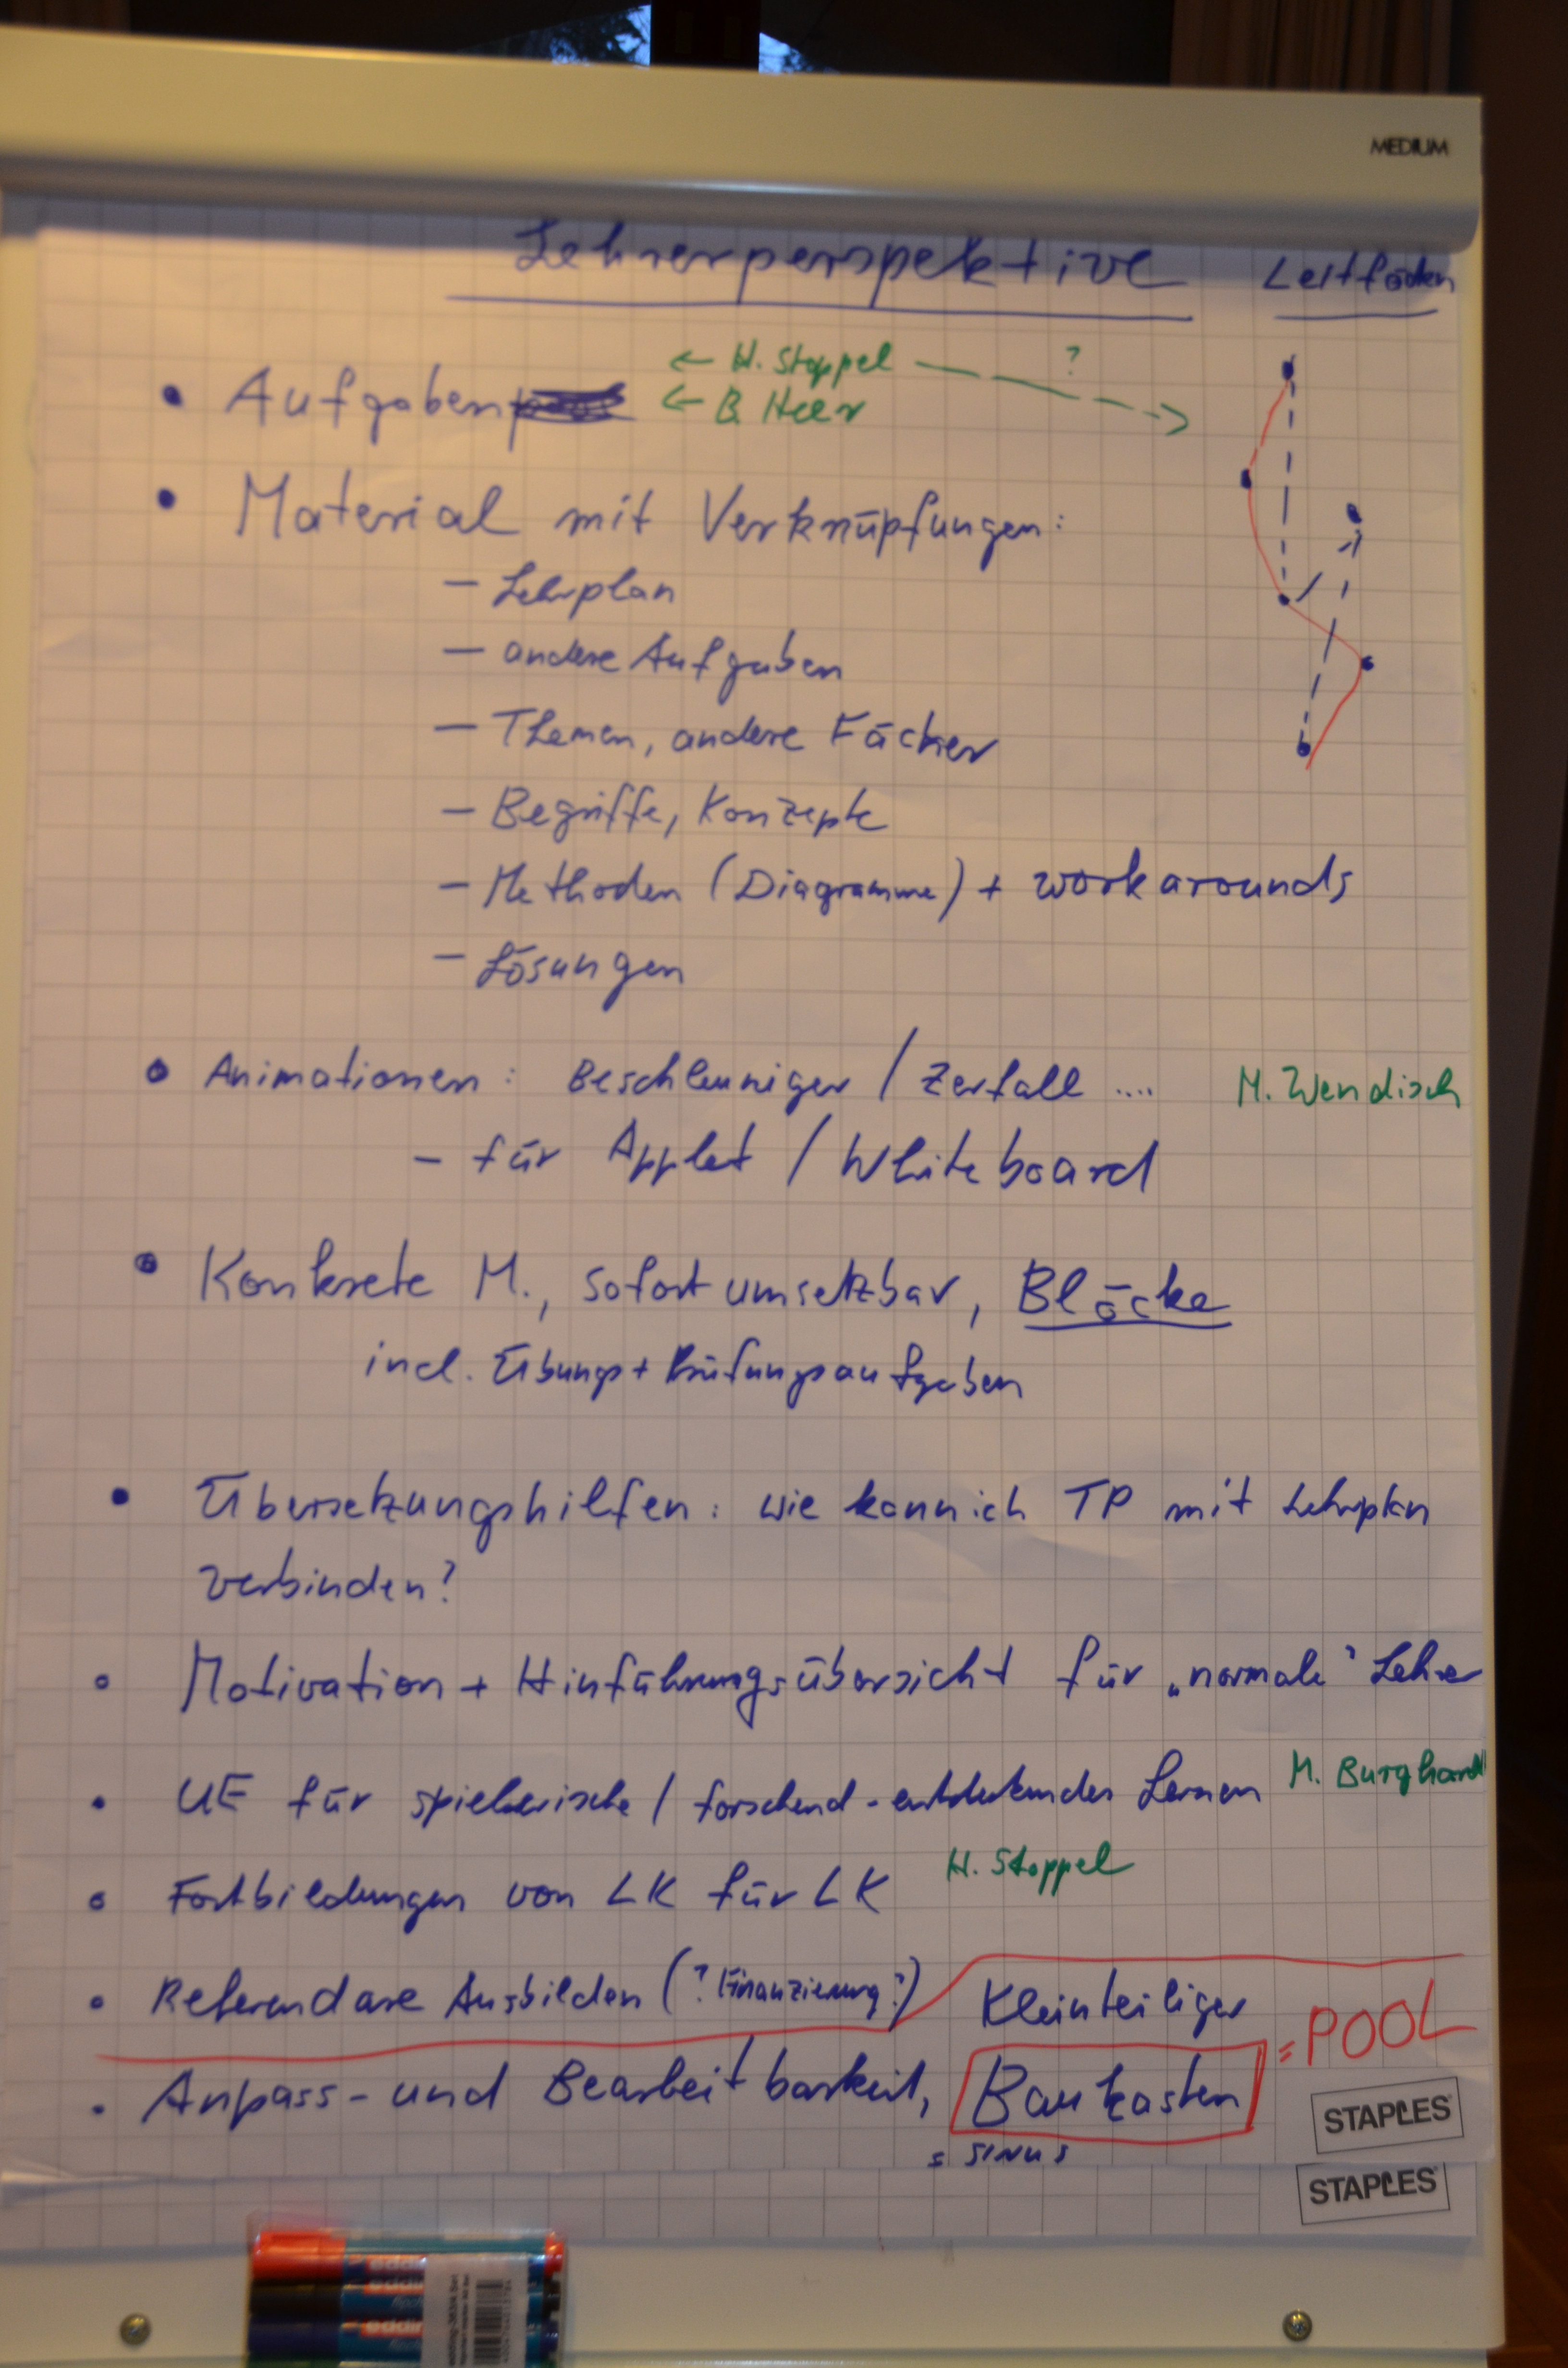 MEDIUM
Lehrerperspektive Leitfäden
• Aufgaben ← H. Stoppel ?
← B. Heer
• Material mit Verknüpfungen:
– Lehrplan
– andere Aufgaben
– Themen, andere Fächer
– Begriffe, Konzepte
– Methoden (Diagramme) + workarounds
– Lösungen
• Animationen: Beschleuniger / Zerfall .... M. Wendisch
– für Applet / Whiteboard
• Konkrete M., sofort umsetzbar, Blöcke
incl. Übungs + Prüfungsaufgaben
• Übersetzungshilfen: wie kann ich TP mit Lehrplan
verbinden?
• Motivation + Hinführungsübersicht für „normale" Lehrer
• UE für spielerische / forschend-entdeckendes Lernen M. Burghardt
• Fortbildungen von LK für LK H. Stoppel
• Referendare Ausbilden (? Finanzierung?) Kleinteiliger
• Anpass- und Bearbeitbarkeit, Baukasten = POOL
= SINUS
STAPLES
STAPLES